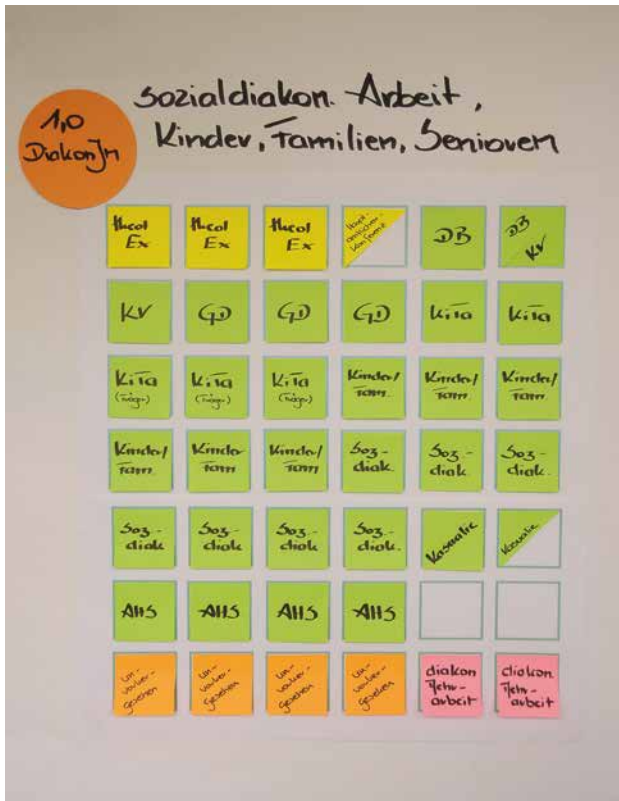 sozialdiakon. Arbeit,
Kinder, Familien, Senioren
1,0
DiakonIn
theol
Ex
theol
Ex
theol
Ex
DB
DB
KV
KV
GD
GD
GD
Kita
Kita
Kita
(Träger)
Kita
(Träger)
Kita
(Träger)
Kinder/
Fam.
Kinder/
Fam.
Kinder/
Fam.
Kinder/
Fam
Kinder
Fam
Kinder/
Fam
Soz-
diak.
Soz-
diak.
Soz-
diak.
Soz-
diak
Soz-
diak
Soz-
diak
Soz-
diak.
Kasualie
Kasualie
AHS
AHS
AHS
AHS
Un-
vorher-
gesehen
Un-
vorher-
gesehen
Un-
vorher-
gesehen
Un-
vorher-
gesehen
diakon
arbeit
diakon.
arbeit